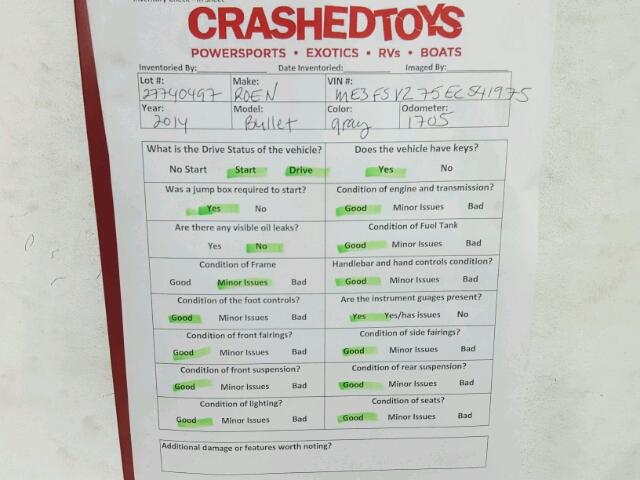 Inventory Check - In Sheet
CRASHEDTOYS
POWERSPORTS • EXOTICS • RVs • BOATS
Inventoried By: Date Inventoried: Imaged By:
Lot #: Make: VIN #:
27740497 ROEN ME3FSV275EC541975
Year: Model: Color: Odometer:
2014 Bullet gray 1705
What is the Drive Status of the vehicle? Does the vehicle have keys?
No Start Start Drive Yes No
Was a jump box required to start? Condition of engine and transmission?
Yes No Good Minor Issues Bad
Are there any visible oil leaks? Condition of Fuel Tank
Yes No Good Minor Issues Bad
Condition of Frame Handlebar and hand controls condition?
Good Minor Issues Bad Good Minor Issues Bad
Condition of the foot controls? Are the instrument guages present?
Good Minor Issues Bad Yes Yes/has issues No
Condition of front fairings? Condition of side fairings?
Good Minor Issues Bad Good Minor Issues Bad
Condition of front suspension? Condition of rear suspension?
Good Minor Issues Bad Good Minor Issues Bad
Condition of lighting? Condition of seats?
Good Minor Issues Bad Good Minor Issues Bad
Additional damage or features worth noting?